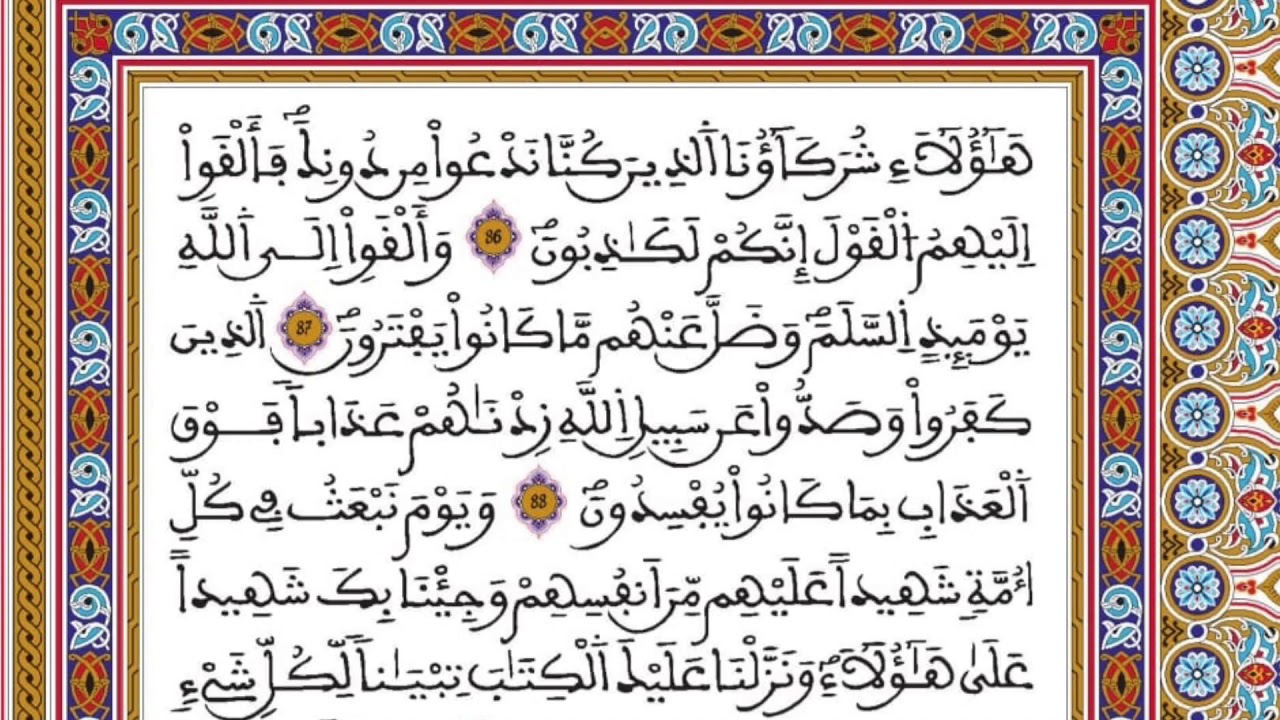 هَٰٓؤُلَآءِ شُرَكَآؤُنَا اَ۬لذِينَ كُنَّا نَدْعُواْ مِن دُونِكَۖ فَأَلْقَوِاْ
اِلَيْهِمُ اُ۬لْقَوْلَ إِنَّكُمْ لَكَٰذِبُونَۖ 86 وَأَلْقَوِاْ اِلَى اَ۬للَّهِ
يَوْمَئِذٍ اِ۬لسَّلَمَۖ وَضَلَّ عَنْهُم مَّا كَانُواْ يَفْتَرُونَۖ 87 اَ۬لذِينَ
كَفَرُواْ وَصَدُّواْ عَن سَبِيلِ اِ۬للَّهِ زِدْنَٰهُمْ عَذَاباٗ فَوْقَ
اَ۬لْعَذَابِ بِمَا كَانُواْ يُفْسِدُونَۖ 88 وَيَوْمَ نَبْعَثُ فِے كُلِّ
أُمَّةٖ شَهِيداً عَلَيْهِم مِّنَ اَنفُسِهِمْ وَجِئْنَا بِكَ شَهِيداً
عَلَىٰ هَٰٓؤُلَآءِۖ وَنَزَّلْنَا عَلَيْكَ اَ۬لْكِتَٰبَ تِبْيَٰناٗ لِّكُلِّ شَےْءٖ